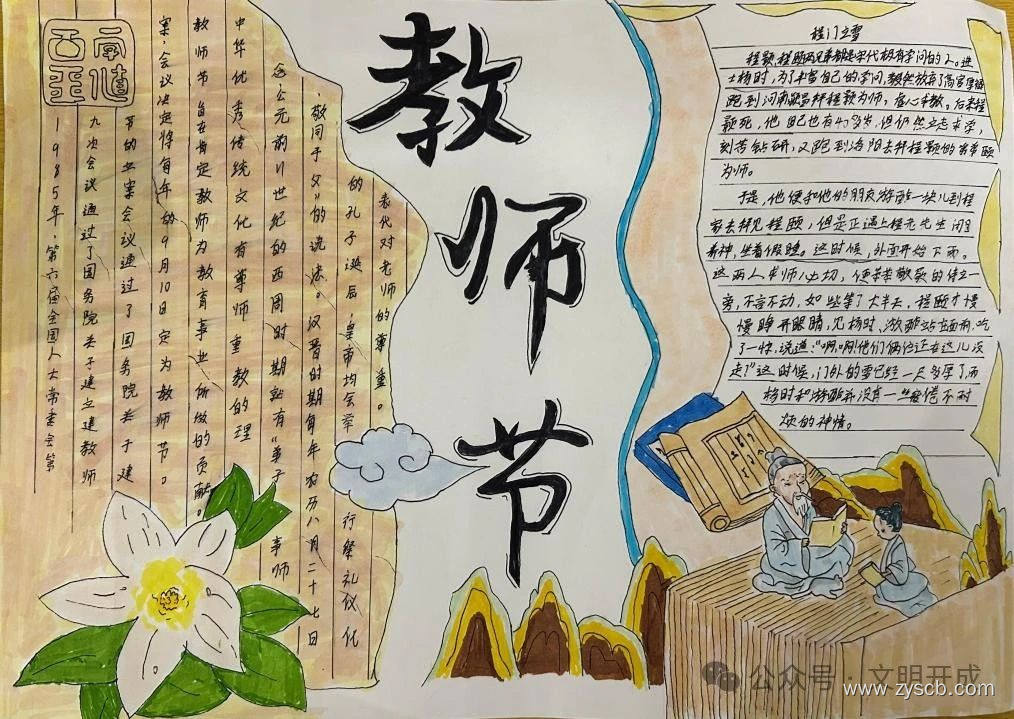 教师节
1985年，第六届全国人大常委会第
九次会议通过了国务院关于建立建教师
节的议案会议通过了国务院关于建
案，会议决定将每年的9月10日定为教师节。
教师节旨在肯定教师为教育事业所做的贡献。
中华优秀传统文化有尊师重教的理
念公元前11世纪的西周时期就有“弟子事师
，敬同于父”的说法。汉晋时期每年农历八月二十七日
的孔子诞辰，皇帝均会举行祭礼仪化
表代对老师的尊重。
程门立雪
程颢、程颐两兄弟都是宋代极有学问的人。进
士杨时，为了丰富自己的学问，毅然放弃了高官厚禄
跑到河南颍昌拜程颢为师，虚心求教。后来程
颢死，他自己也有40多岁，但仍然立志求学，
刻苦钻研，又跑到洛阳去拜程颢的弟弟颐
为师。
于是，他便和他的朋友游酢一块儿到程
家去拜见程颐，但是正遇上程老先生闭目
养神，坐着假睡。这时候，外面开始下雨。
这两人求师心切，便恭恭敬敬的侍立一
旁，不言不动，如此等了大半天，程颐才慢
慢睁开眼睛，见杨时、游酢站在面前，吃
了一惊，说道：“啊，啊！他们俩位还在这儿没
走？”这时候，门外的雪已经一尺多厚了而
杨时和游酢并没有一丝疲倦不耐
烦的神情。
公众号·文明开成
www.zyscb.com